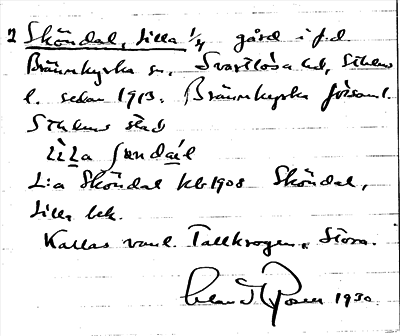 2 Sköndal, Lilla 1/4 gård i f.d.
Brännkyrka sn, Svartlösa hd, Sthlms
l. sedan 1913. Brännkyrka församl.
Sthlms stad
Lilla
L:a Sköndal kb 1908 Sköndal,
Lilla
Kallas vanl. Tallkrogen, Stora.
1930